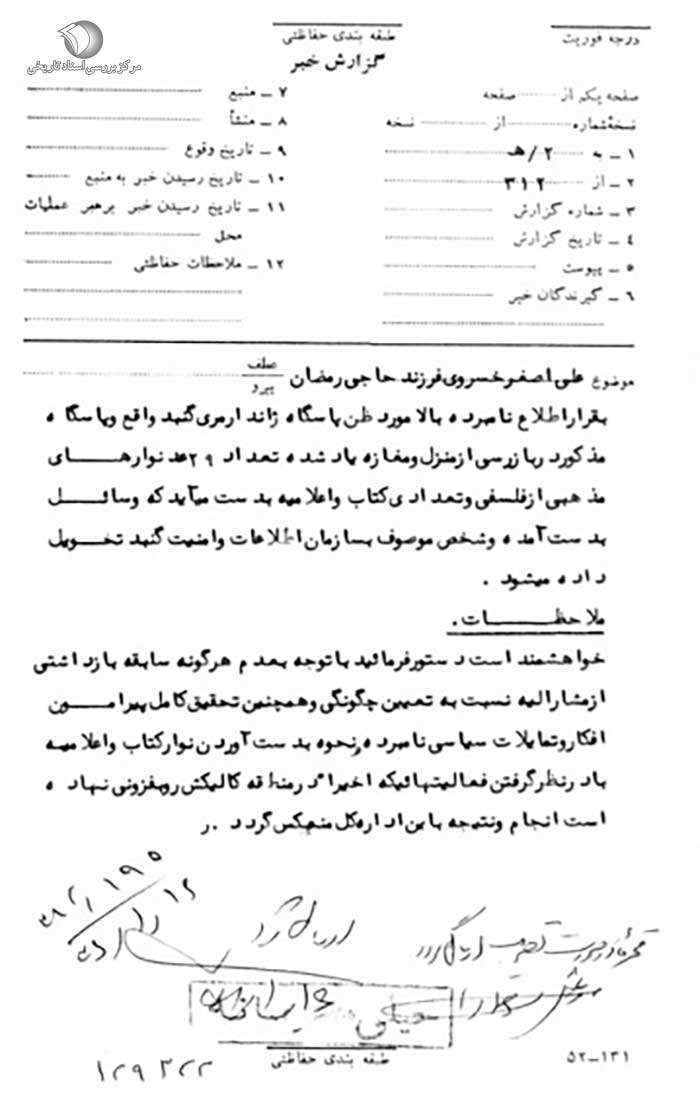 مرکز بررسی اسناد تاریخی
درجه فوریت
طبقه بندی حفاظتی
گزارش خبر
صفحه یکم از صفحه
نسخهٔ شماره از نسخه
۱ ــ به ۲ / هـ
۲ ــ از ۳۱۲
۳ ــ شماره گزارش
۴ ــ تاریخ گزارش
۵ ــ پیوست
۶ ــ گیرندگان خبر
۷ ــ منبع
۸ ــ منشأ
۹ ــ تاریخ وقوع
۱۰ ــ تاریخ رسیدن خبر به منبع
۱۱ ــ تاریخ رسیدن خبر برهبر عملیات
محل
۱۲ ــ ملاحظات حفاظتی
موضوع علی اصغر خسروی فرزند حاجی رمضان عطف
پیرو
بقرار اطلاع نامبرده بالا مورد ظن پاسگاه ژاندارمری گنبد واقع و پاسگاه
مذکور در بازرسی از منزل و مغازه یاد شده تعداد ۲۹ عدد نوارهای
مذهبی از فلسفی و تعدادی کتاب و اعلامیه بدست میآید که وسائل
بدست آمده و شخص موصوف بسازمان اطلاعات و امنیت گنبد تحویل
داده میشود .
ملاحظات .
خواهشمند است دستور فرمائید با توجه بعدم هرگونه سابقه بازداشتی
از مشارالیه نسبت به تعیین چگونگی و همچنین تحقیق کامل پیرامون
افکار و تمایلات سیاسی نامبرده و نحوه بدست آوردن نوار کتاب و اعلامیه
با در نظر گرفتن فعالیتهائیکه اخیرا در منطقه کالیکش رو بفزونی نهاده
است انجام و نتیجه باین اداره کل منعکس گردد .ر
ارسال شد
طبقه بندی حفاظتی
۵۲ــ۱۳۱
۱۲۹۳۲۲